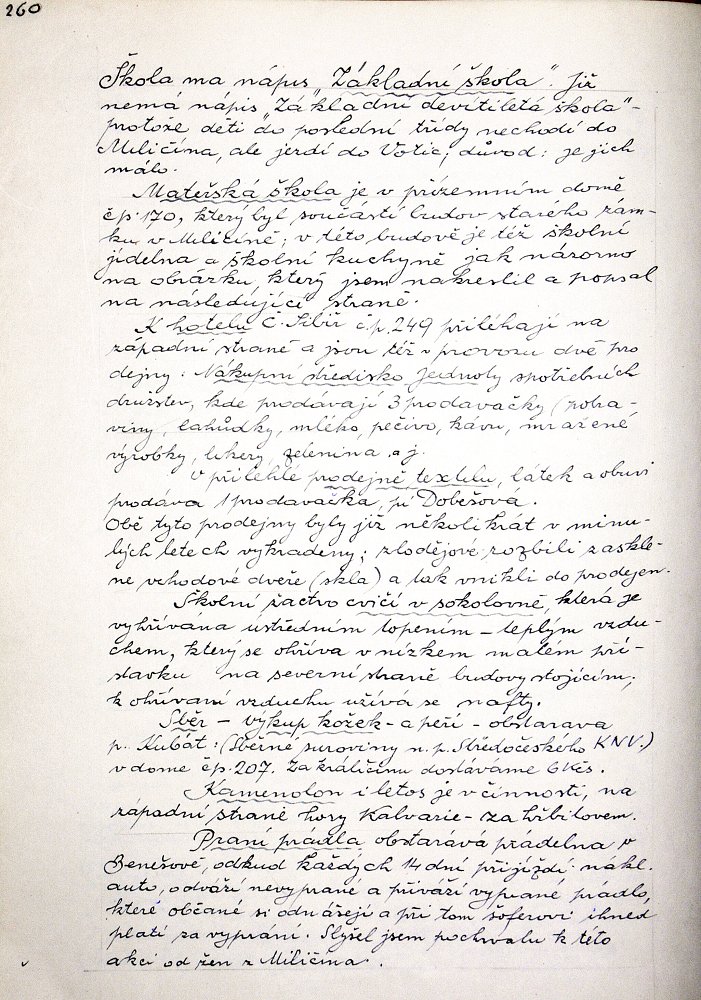 260
Škola ma nápis „Základní škola". Již
nemá nápis „Základní devítiletá škola" -
protože děti do poslední třídy nechodí do
Miličína, ale jezdí do Votic; důvod: je jich
málo.
Mateřská škola je v přízemním domě
čp. 170, který byl součástí budov starého zám-
ku v Miličíně; v této budově je též školní
jídelna a školní kuchyně jak názorno
na obrázku, který jsem nakreslil a popsal
na následující straně.
K hotelu Č. Sibiř č.p. 249 přiléhají na
západní straně a jsou též v provozu dvě pro
dejny: Nákupní středisko Jednoty spotřebních
družstev, kde prodávají 3 prodavačky (potra-
viny, lahůdky, mléko, pečivo, kávu, mražené
výrobky, likery, zelenina a j.
V přilehlé prodejně textilu, látek a obuvi
prodáva 1 prodavačka, pí Dobešova.
Obě tyto prodejny byly již několikrát v minu-
lých letech vykradeny; zlodějové rozbili zaskle-
ne vchodové dveře (skla) a tak vnikli do prodejen.
Školní žactvo cvičí v sokolovně, která je
vyhřívana ústředním topením - teplým vzdu-
chem, který se ohříva v nízkem malém pří-
stavku na severní straně budovy stojícím;
k ohřívaní vzduchu užívá se nafty.
Sběr - výkup kožek - a peří - obstarava
p. Kubát: (Sběrné suroviny n. p. Středočeského KNV.)
v dome čp. 207. Za králičinu dostáváme 6 Kčs.
Kamenolom i letos je v činnosti, na
západní straně hory Kalvarie - za hřbitovem.
Praní prádla obstarává prádelna v
Benešově, odkud každých 14 dní přijíždí nákl.
auto, odváží nevyprané a přiváží vyprané prádlo,
které občané si odnášejí a při tom šoferovi ihned
platí za vyprání. Slyšel jsem pochvalu k této
akci od žen z Miličína.